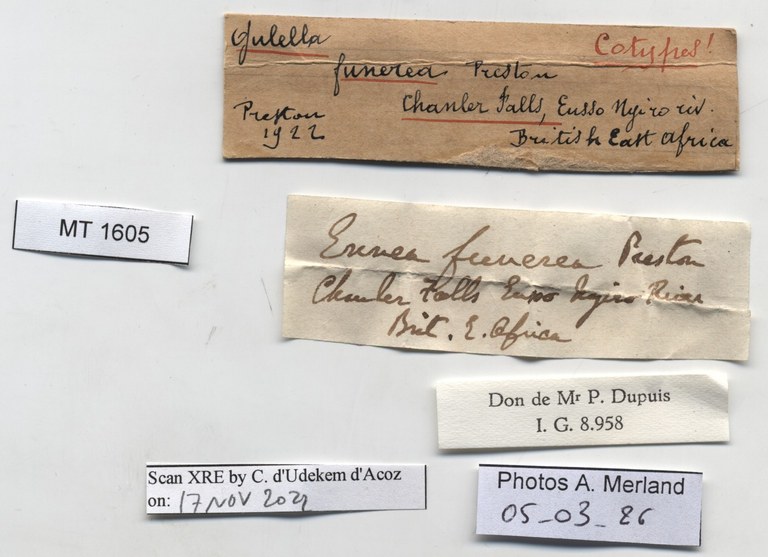 Gulella
Cotypes!
funerea Preston
Chanler Falls, Eusso Nyiro riv.
Preston
1922
British East Africa
MT 1605
Ennea funerea Preston
Chanler Falls Eusso Nyiro River
Brit. E. Africa
Don de Mr P. Dupuis
I. G. 8.958
Scan XRE by C. d'Udekem d'Acoz
on: 17 NOV
Photos A. Merland
05_03_26